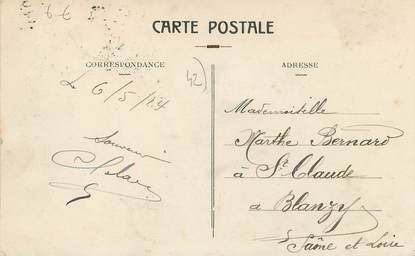 CARTE POSTALE
CORRESPONDANCE
ADRESSE
42)
Le 6/5/24
Souvenir
Mademoiselle
Marthe Bernard
à St Claude
a Blanzy
Saône et Loire